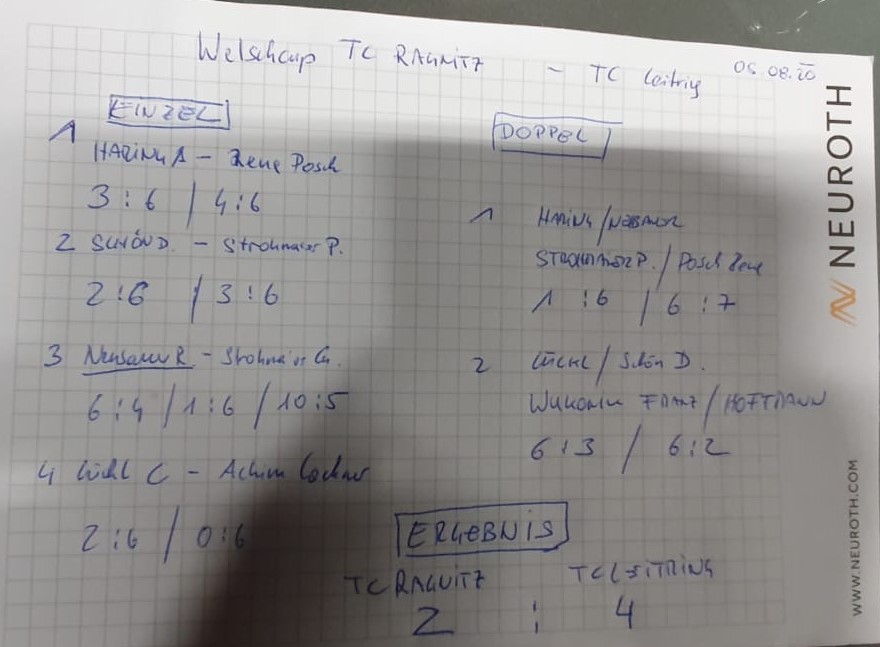 Welschcup TC RAGNITZ - TC Leitring 05.08.20
EINZEL
1
HARING A - Rene Posch
3:6 / 4:6
2 SCHÖN D. - Strohmaier P.
2:6 / 3:6
3 R - Strohmaier
6:4 / 1:6 / 10:5
4 C - Achim
2:6 / 0:6
DOPPEL
1 HARING /
STROHMAIER P. / Posch Rene
1 :6 / 6 :7
2 / Schön D.
FRANZ / HOFFMANN
6:3 / 6:2
ERGEBNIS
TC RAGNITZ TC LEITRING
2 : 4
NEUROTH
WWW.NEUROTH.COM